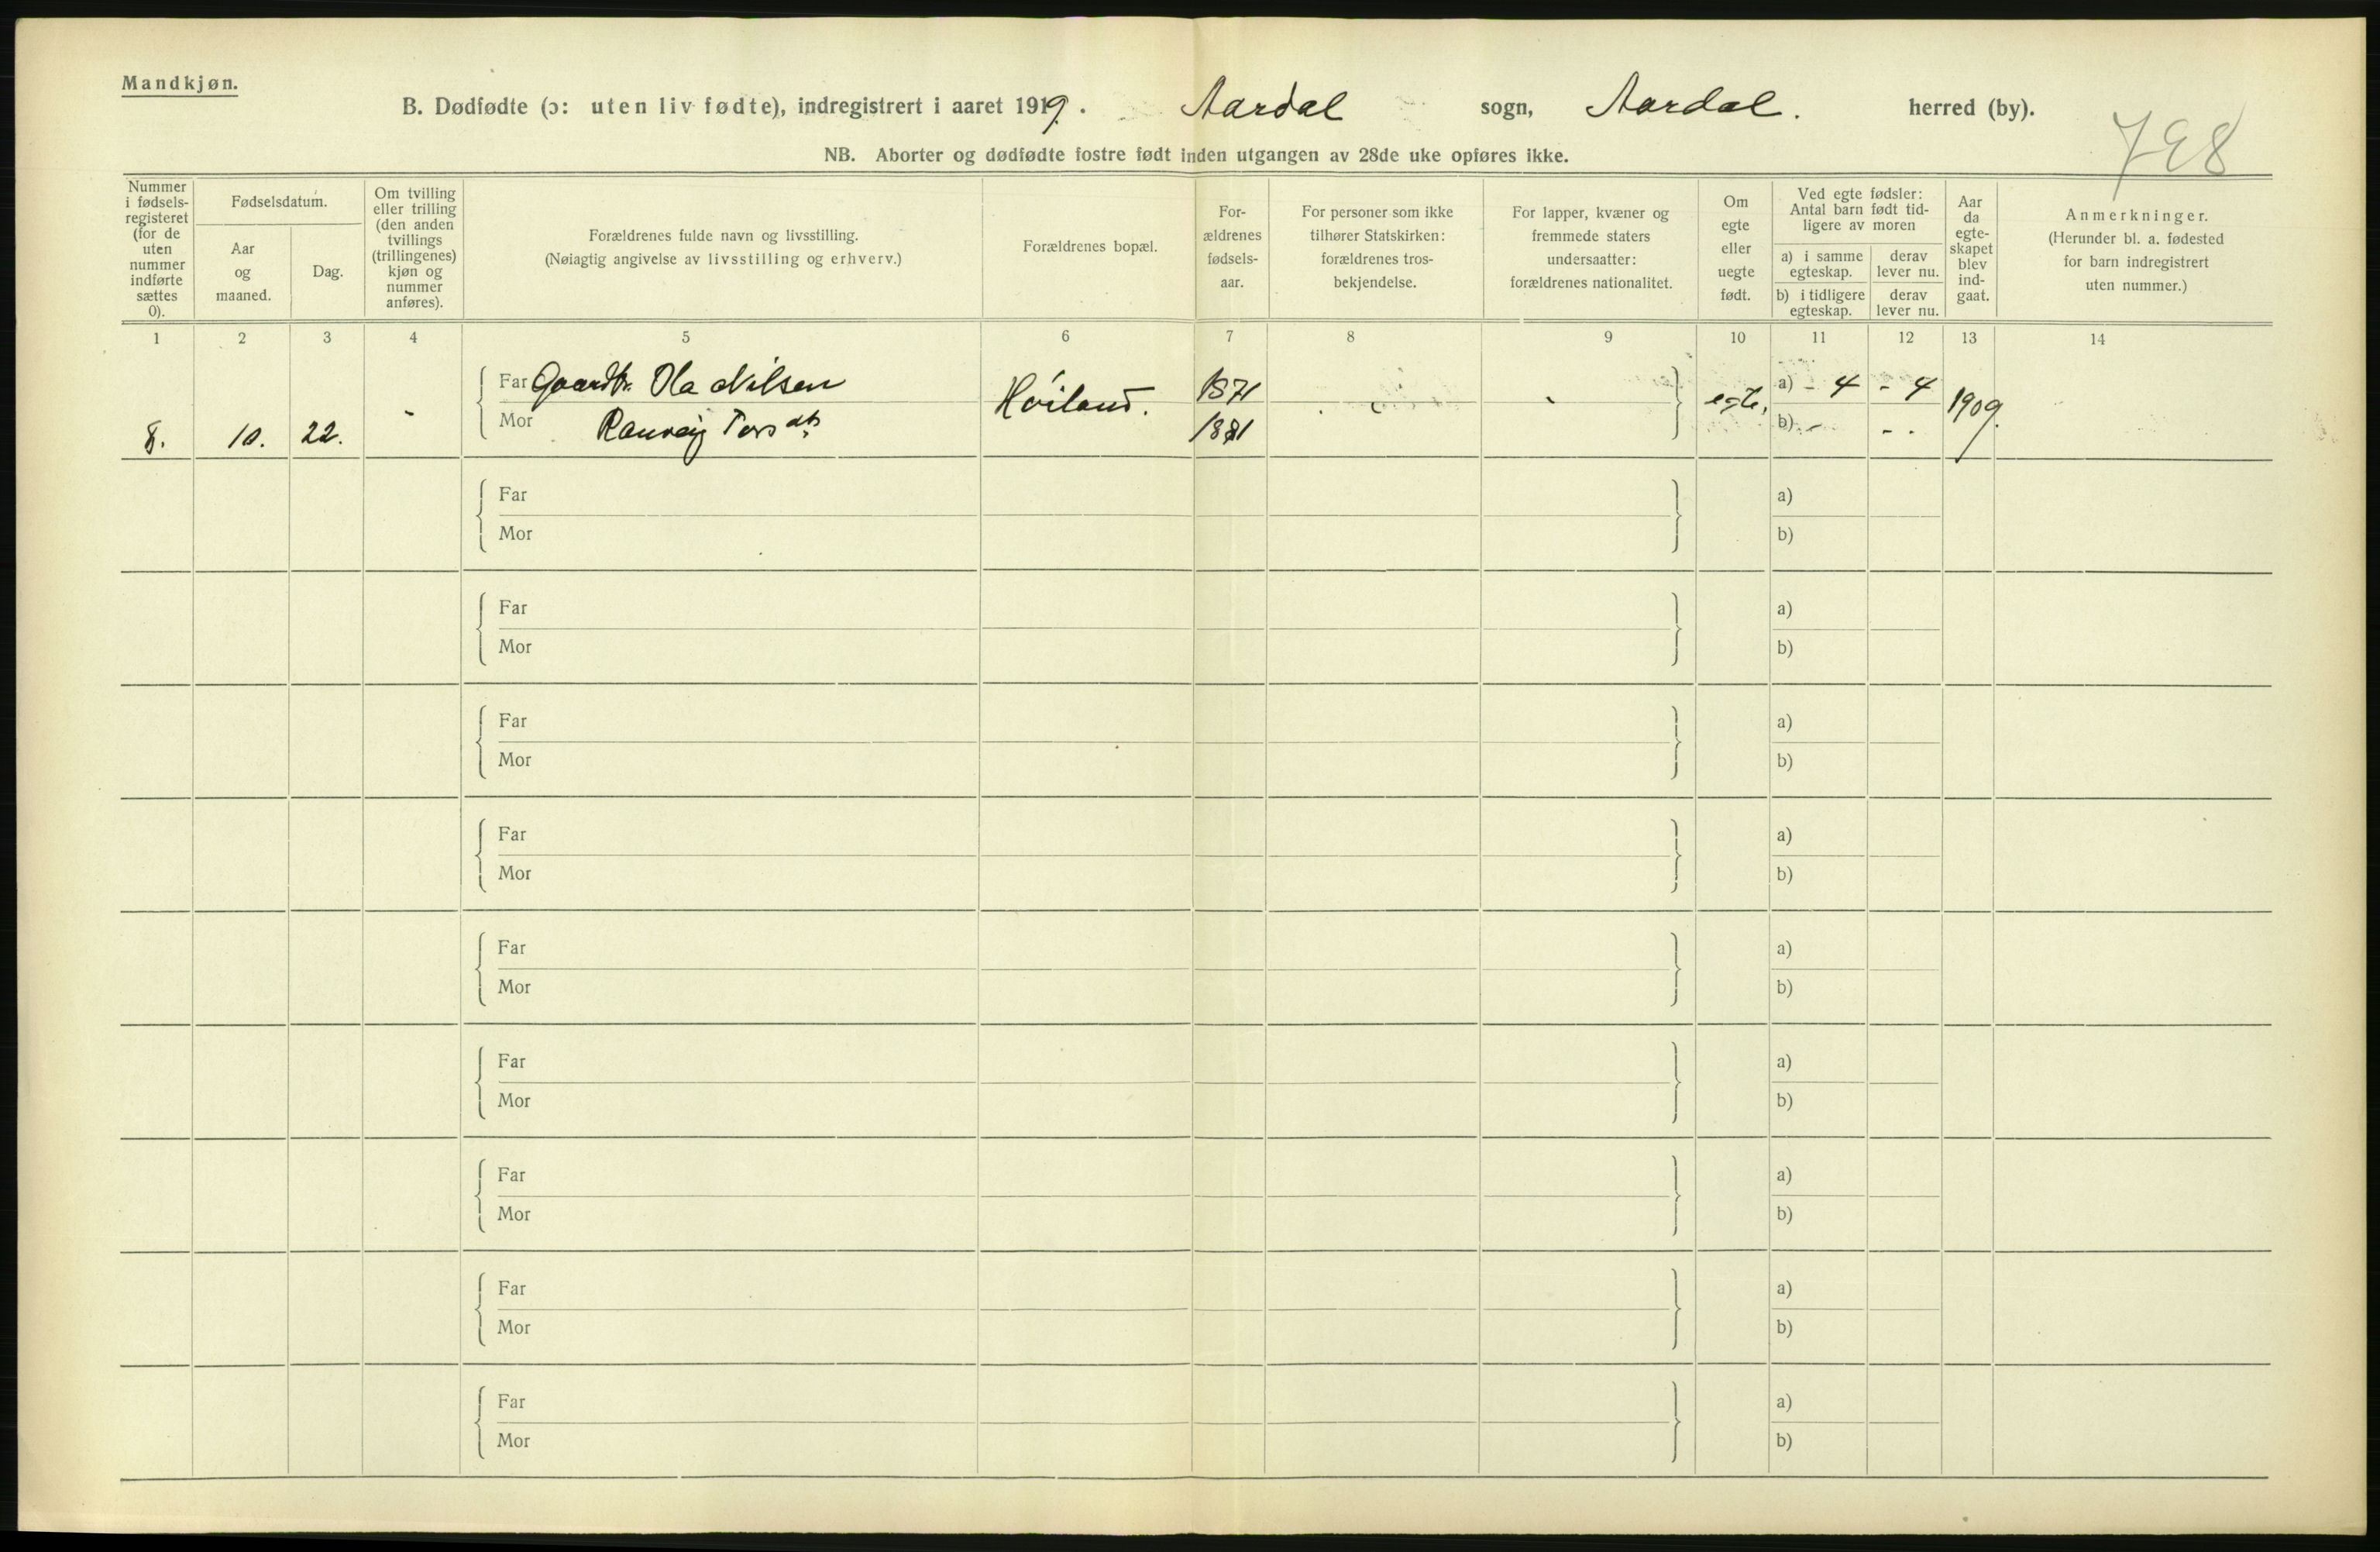 Mandkjøn.
B. Dødfødte (ɔ: uten liv fødte), indregistrert i aaret 1919. Aardal sogn, Aardal. herred (by).
798
NB. Aborter og dødfødte fostre født inden utgangen av 28de uke opføres ikke.
Nummer i fødsels-registeret (for de uten nummer indførte sættes 0).
Fødselsdatum.
Aar og maaned.
Dag.
Om tvilling eller trilling (den anden tvillings (trillingenes) kjøn og nummer anføres).
Forældrenes fulde navn og livsstilling.
(Nøiagtig angivelse av livsstilling og erhverv.)
Forældrenes bopæl.
For-ældrenes fødsels-aar.
For personer som ikke tilhører Statskirken: forældrenes tros-bekjendelse.
For lapper, kvæner og fremmede staters undersaatter: forældrenes nationalitet.
Om egte eller uegte født.
Ved egte fødsler: Antal barn født tid-ligere av moren
a) i samme egteskap.
derav lever nu.
b) i tidligere egteskap.
derav lever nu.
Aar da egte-skapet blev ind-gaat.
Anmerkninger.
(Herunder bl. a. fødested for barn indregistrert uten nummer.)
1 2 3 4 5 6 7 8 9 10 11 12 13 14
Far Gaardbr. Ola Nilsen Høiland. 1871 egte, a) - 4 - 4 1909.
8. 10. 22. - Mor Ranveig Torsdtr 1881 b) - - -
Far a)
Mor b)
Far a)
Mor b)
Far a)
Mor b)
Far a)
Mor b)
Far a)
Mor b)
Far a)
Mor b)
Far a)
Mor b)
Far a)
Mor b)
Far a)
Mor b)